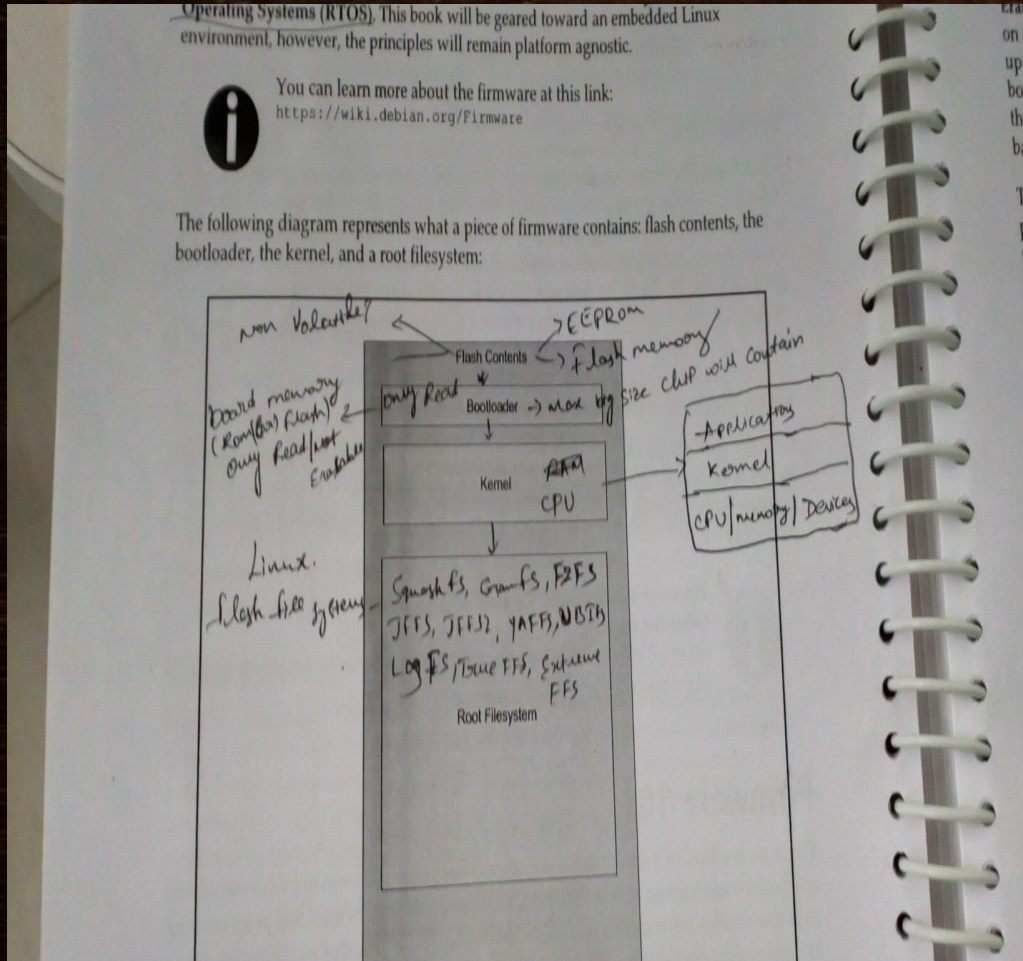 Operating Systems (RTOS). This book will be geared toward an embedded Linux
environment, however, the principles will remain platform agnostic.
You can learn more about the firmware at this link:
https://wiki.debian.org/Firmware
The following diagram represents what a piece of firmware contains: flash contents, the
bootloader, the kernel, and a root filesystem:
Non Volatile
EEPROM
Flash Contents
Flash memory
only Read
Bootloader
size chip will contain
board memory
(Rom Flash)
only Read/not
Erasable
Kernel
RAM
CPU
Applications
Kernel
CPU/memory/Devices
Linux.
flash file systems
Squashfs, CramFS, F2FS
JFFS, JFFS2, YAFFS, UBIFS
LogFS, True FFS, Extreme
FFS
Root Filesystem
on
up
bo
th
ba